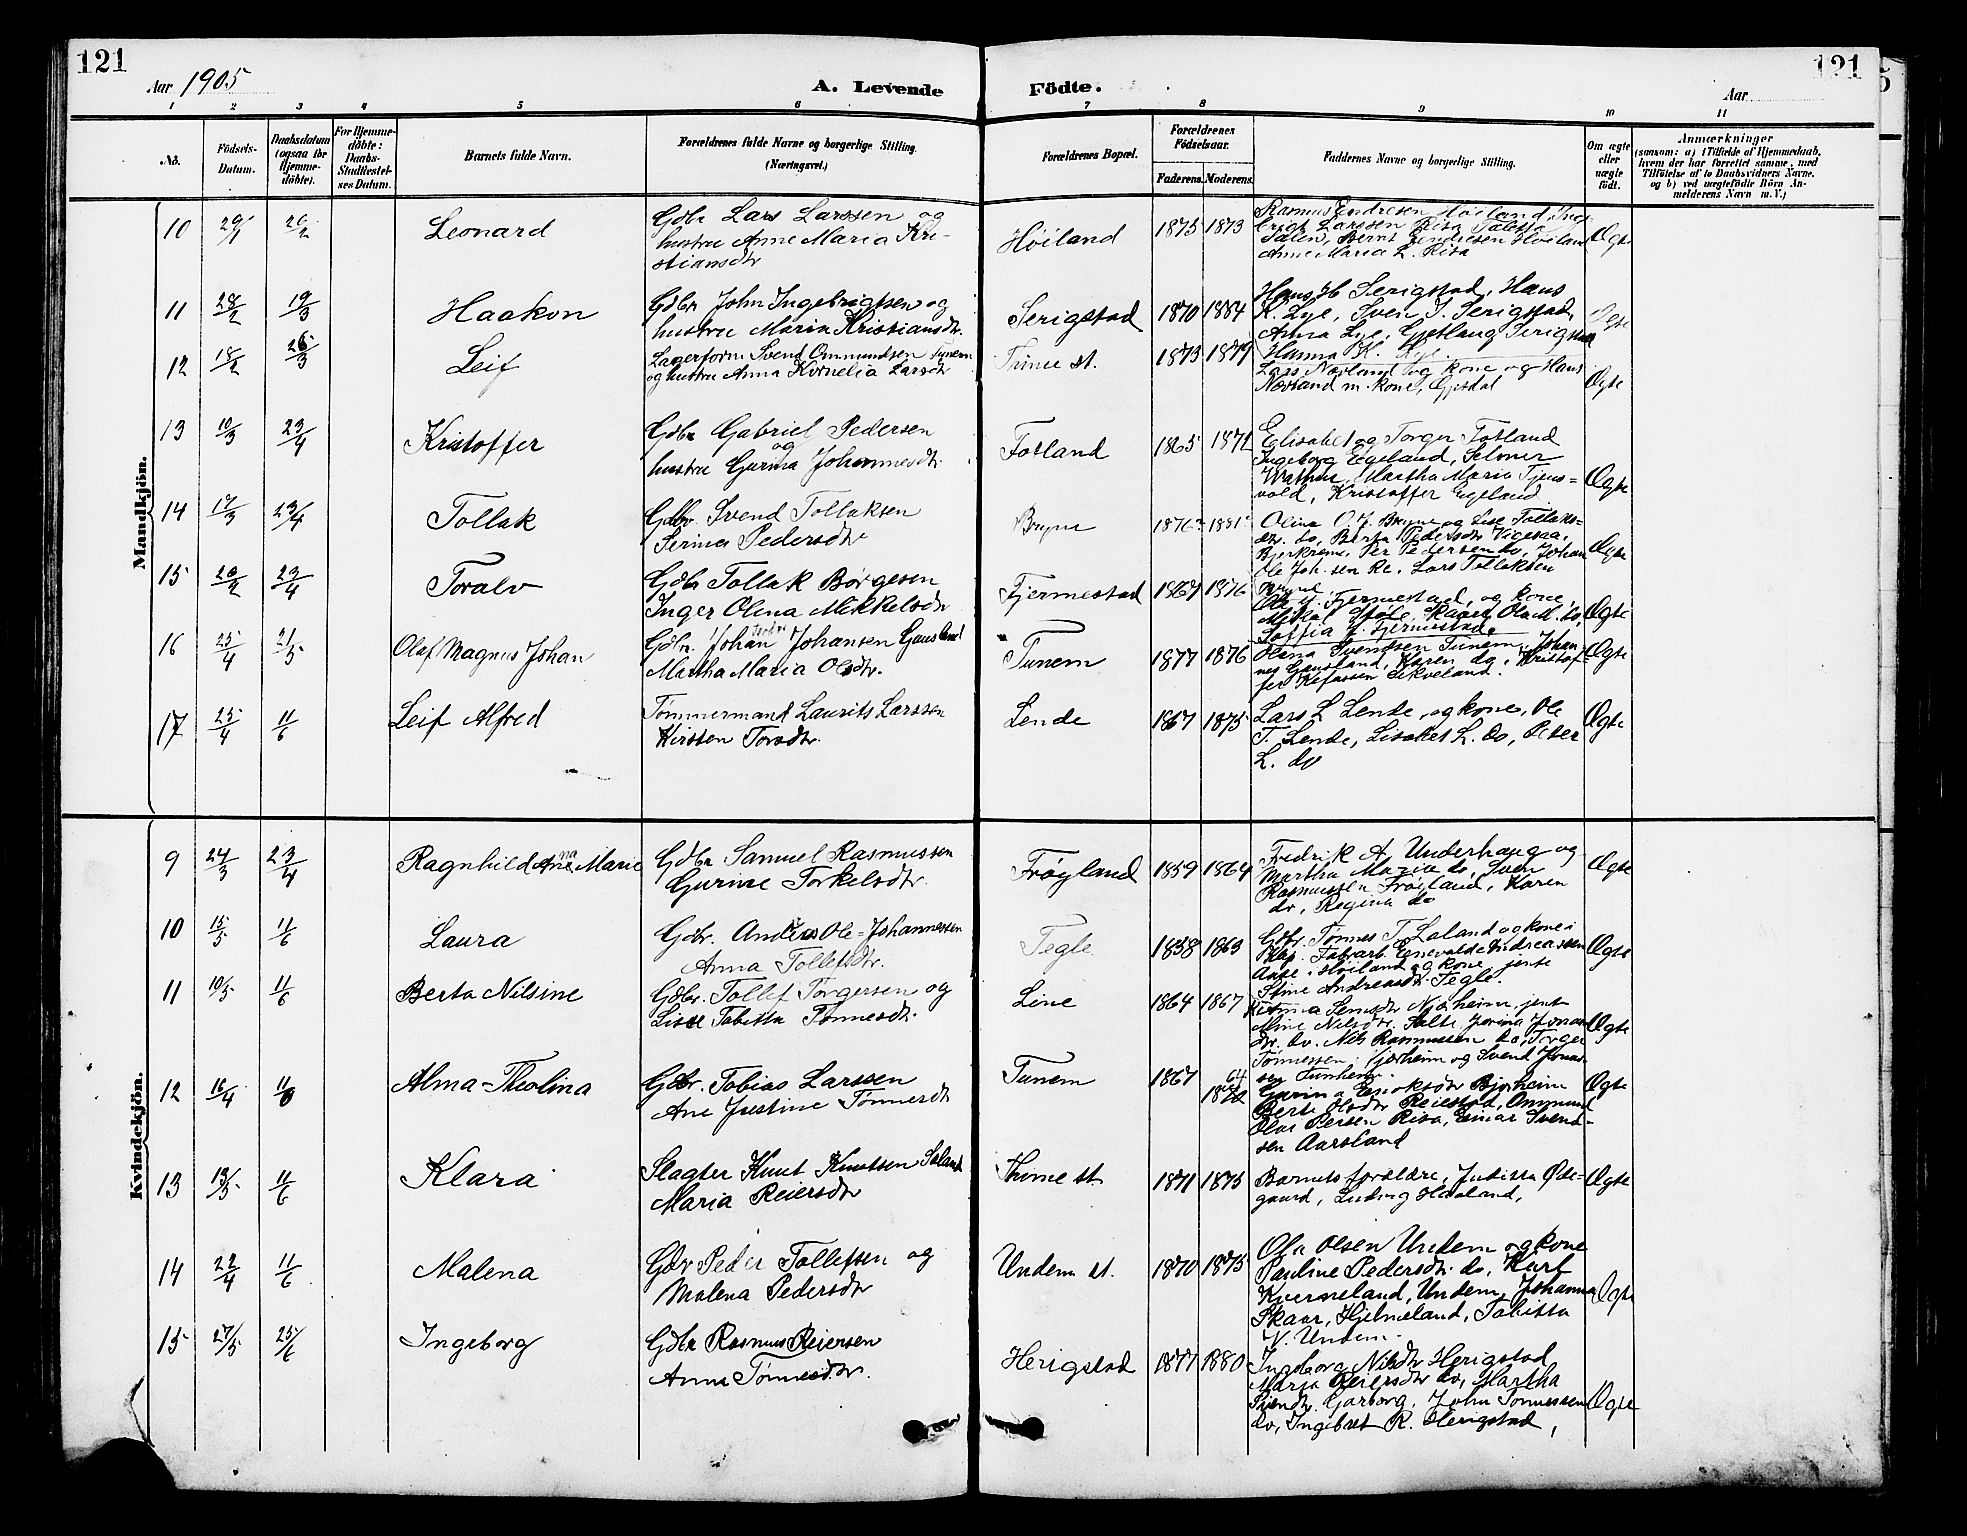 121
Aar 1905
A. Levende Födte.
121
Aar
1 2 3 4 5 6 7 8 9 10 11
No.
Födsels-Datum.
Daabsdatum (ogsaa for Hjemme-döbte).
For Hjemme-döbte: Daabs-Stadfæstel-ses Datum.
Barnets fulde Navn.
Forældrenes fulde Navne og borgerlige Stilling. (Næringsvei.)
Forældrenes Bopæl.
Forældrenes Födselsaar.
Faderens. Moderens.
Faddernes Navne og borgerlige Stilling.
Om ægte eller uægte födt.
Anmærkninger
(saasom: a) i Tilfælde af Hjemmedaab, hvem der har forrettet samme, med Tilföielse af to Daabsvidners Navne, og b) ved uægtefödte Börn An-melderens Navn m. V.)
Mandkjön.
10 Leonard
Gdbr Lars Larssen og
hustru Anne Maria Kri-
stiansdtr
Höiland 1875 1873
Rasmus Endresen Höiland
Anne Maria L. Risa
Ægte
11 28/2 19/3 Haakon
Gdbr John Ingebrigtsen og
hustru Maria Kristiansdtr.
Serigstad 1870 1884
Hans H Serigstad, Hans
K. Lye, Sven J. Serigstad,
Anna Lye, Gjetlaug Serigstad
Hanna K. Lye.
Ægte
12 18/2 26/3 Leif
Lagerform Svend Ommundsen Tunem
og hustru Anna Kornelia Larsdtr
Time st. 1873 1879
Lars Nævland og kone og Hans
Nævland m. kone, Gjesdal
Ægte
13 10/3 23/4 Kristoffer
Gdbr Gabriel Pedersen
og
hustru Gurina Johannesdtr.
Fotland 1865 1871
Elisabet og Torger Fotland
Ingeborg Egeland, Selmer
Wathne, Martha Maria Tjens-
vold, Kristoffer Egeland
Ægte
14 17/3 23/4 Tollak
Gdbr. Svend Tollaksen
Serina Pedersdtr
Bryne 1876 1881
Olina O. J. Bryne og Lise Tollaks-
dtr. do, Berta Pedersdtr Vigesaa,
Bjerkreim, Per Pedersen do, Johan
Ole Joh.sen Re. Lars Tollaksen
Bryne
Ægte
15 20/2 23/4 Toralv
Gdbr Tollak Börgesen
Inger Olena Mikkelsdtr
Fjermestad 1867 1876
Ole J. Fjermestad, og kone,
Soffia J. Fjermestad.
Ægte
16 25/4 31/5 Olaf Magnus Johan
Gdbr. Johan Johansen Gausland
Martha Maria Olsdtr.
Tunem 1877 1876
Olena Svendsen Tunem, Johan-
nes Gausland, Karen do, Kristof-
fer Kefassen Ekveland.
Ægte
17 25/4 11/6 Leif Alfred
Tömmermand Laurits Larssen
Kirsten Torsdtr.
Lende 1867 1875
Lars L Lende, og kone, Ole
T. Lende, Lisabet L. do, Peter
L. do
Ægte
Kvindekjön.
9 24/3 23/4 Ragnhild Anna Marie
Gdbr Samuel Rasmussen
Gurine Torkelsdtr.
Fröyland 1859 1864
Fredrik A Underhaug og
Martha Maria do, Sven
Rasmussen Fröiland, Karen
do, Regina do
Ægte
10 15/5 11/6 Laura
Gdbr. Anders Ole-Johannessen
Anna Tollefsdtr.
Tegle 1858 1863
Gdbr. Tönnes T. Laland og kone i
Klep. Fabrarb. Enevald Andreassen
Aase, Höiland og kone, jente
Stine Andreasdtr Tegle.
Ægte
11 10/5 11/6 Berta Nilsine
Gdbr. Tollef Torgersen og
Lise Tabitta Tönnesdtr.
Line 1864 1867
Njærheim, jente
Mine Nilsdtr. Salte, Jorina Jonas-
dtr. do. Nils Rasmussen do, Torger
Tönnessen, Njærheim og Svend Jonas-
sen Tunheim.
Ægte
12 16/4 11/6 Alma-Theolina
Gdbr. Tobias Larssen
Ane Justine Tönnesdtr
Tunem 1867 64
Gurina Eriksdtr Bjorheim
Berte Olsdtr Reiestad, Ommund
Olai Persen Risa, Einar Svend-
sen Aarsland
Ægte
13 13/5 11/6 Klara
Slagter Knut Knutsen Saland
Maria Reiersdtr
Thime st. 1871 1875
Barnets forældre, Juditta Öde-
gaard, Ludvig Haaland,
Ægte
14 22/4 11/6 Malena
Gdbr Peder Tollefsen og
Malena Pedersdtr
Undem st. 1870 1875
Ole Olsen Undem og kone
Pauline Pedersdtr. do, Karl
Kverneland, Undem, Johanna
Skaar, Hjelmeland, Tabitta
V. Undem.
Ægte
15 27/5 25/6 Ingeborg
Gdbr Rasmus Reiersen
Anna Tönnesdtr.
Herigstad 1877 1880
Ingeborg Nilsdtr Herigstad
Marja Reiersdtr do, Martha
Svendtr. Garborg, John Tönnessen
do, Ingebret R. Herigstad,
Ægte